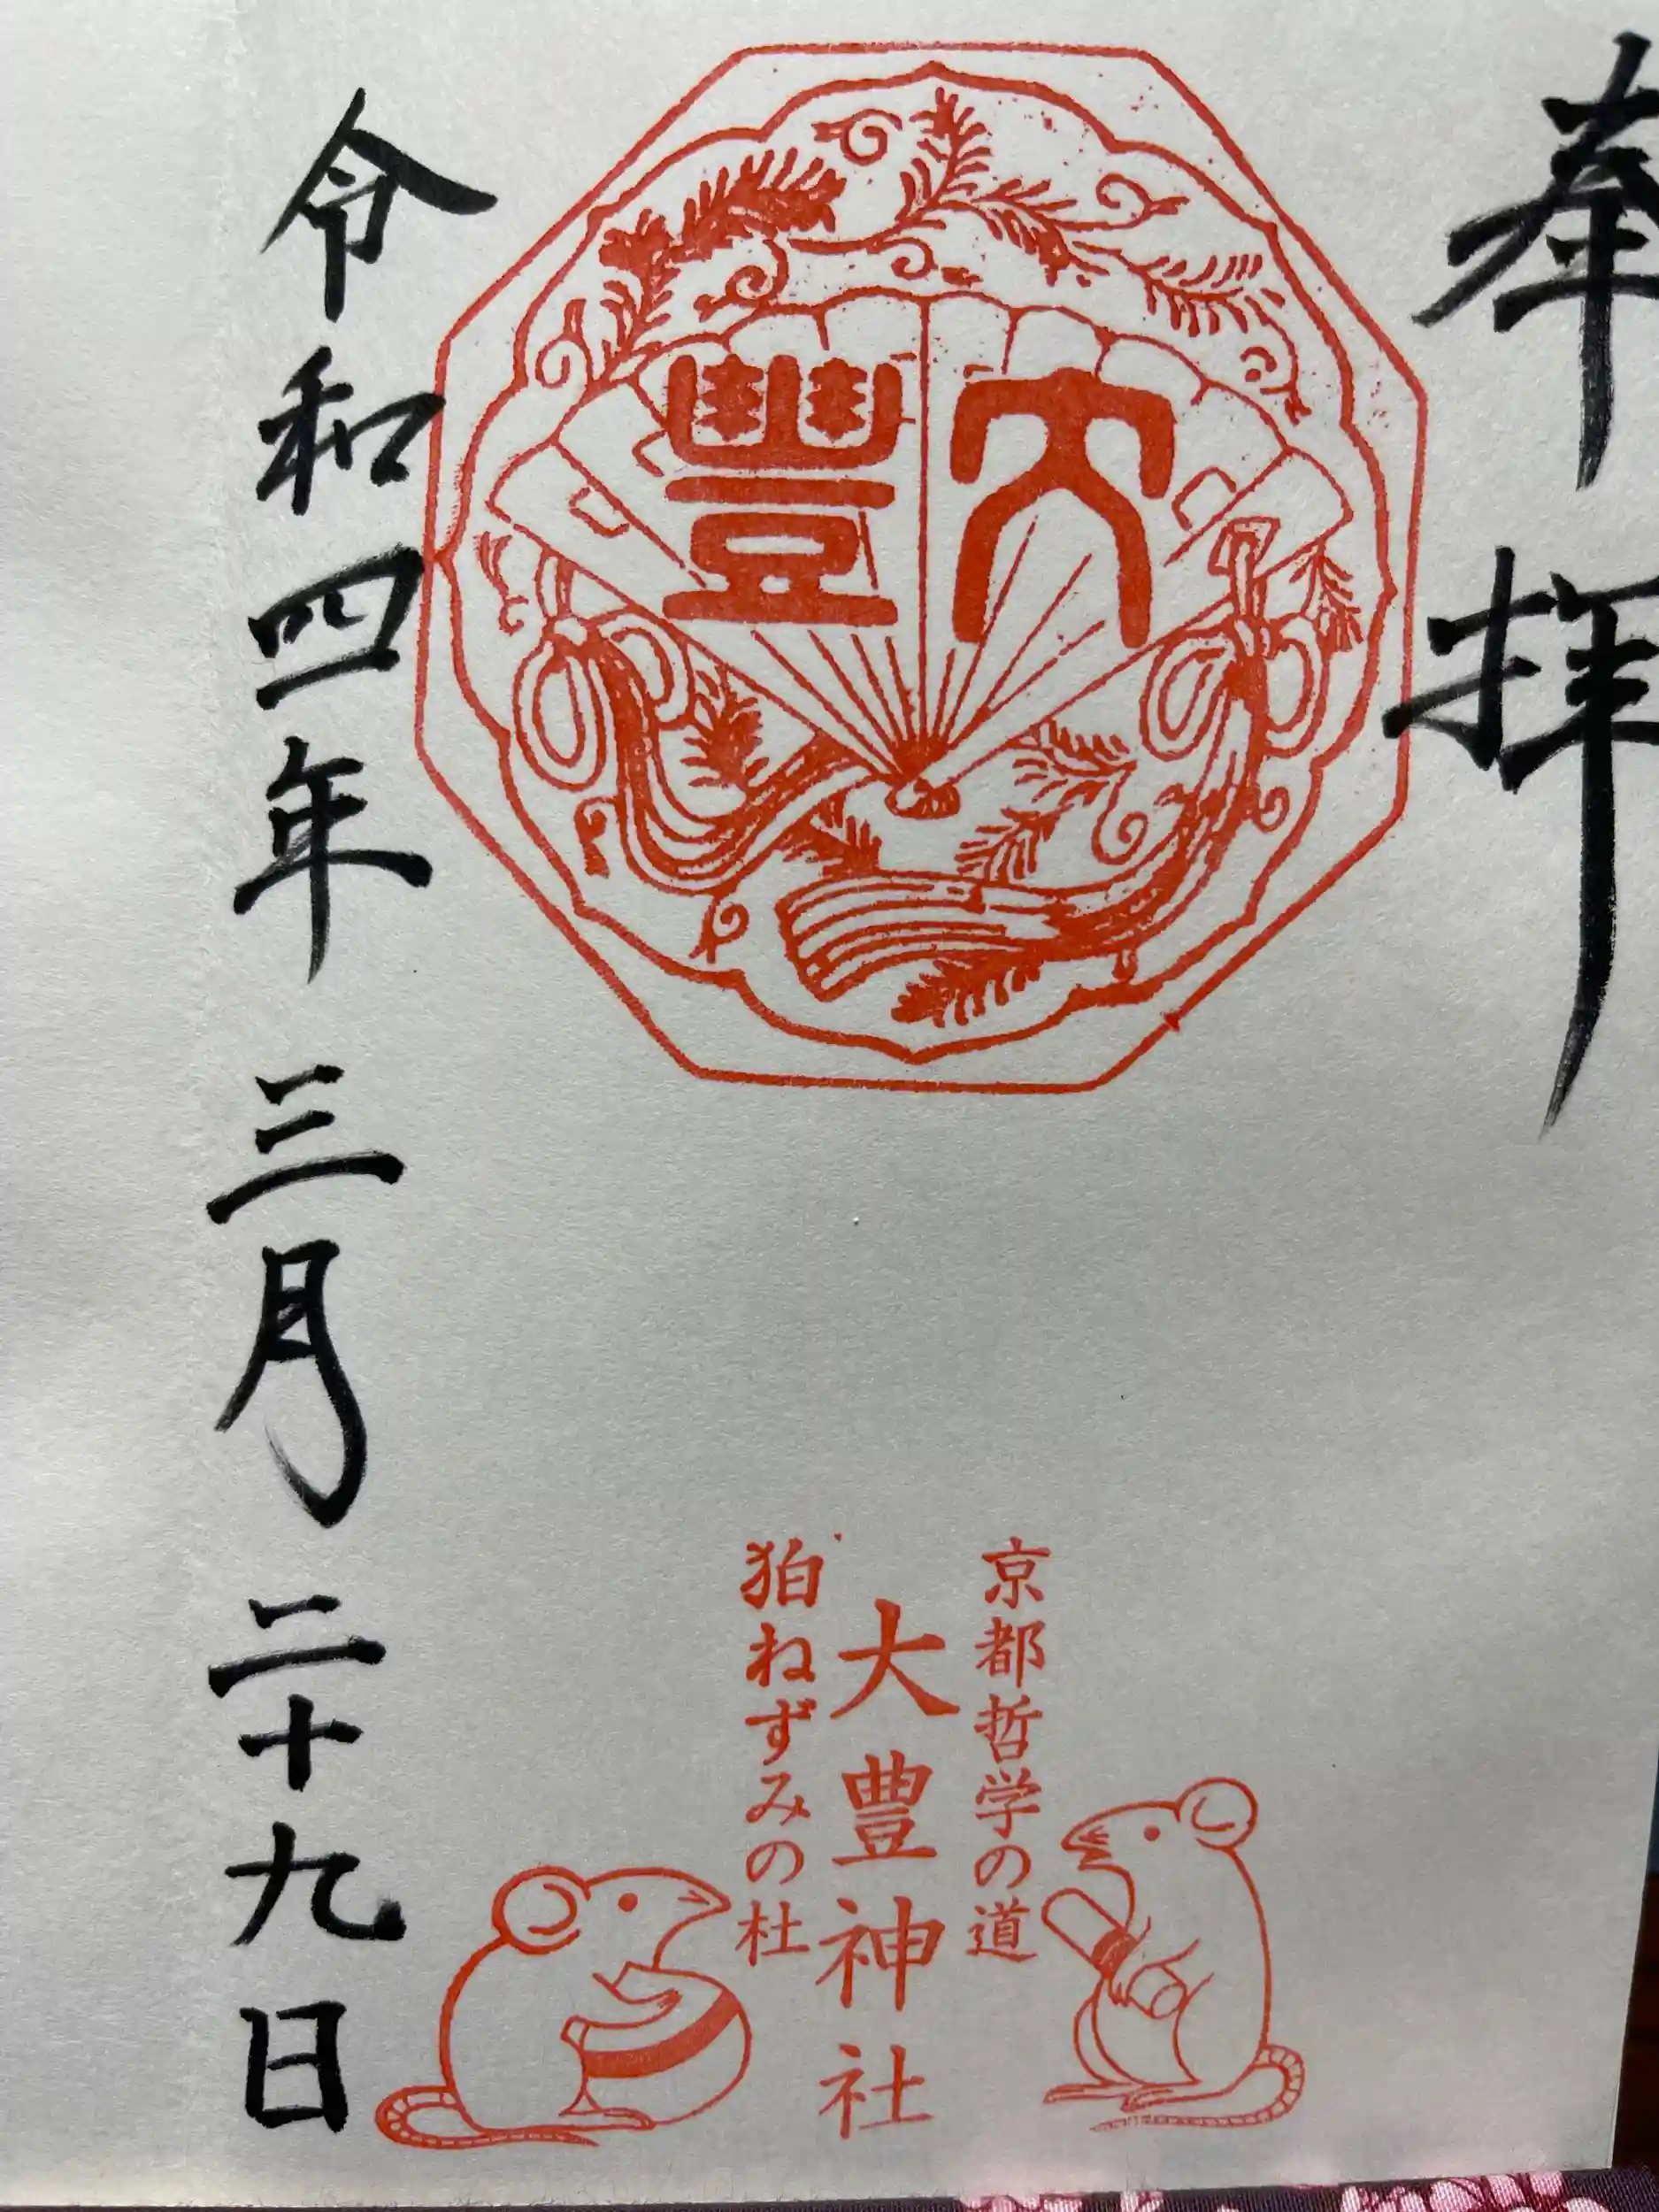 奉拝
大豊
京都哲学の道
大豊神社
狛ねずみの杜
令和四年三月二十九日